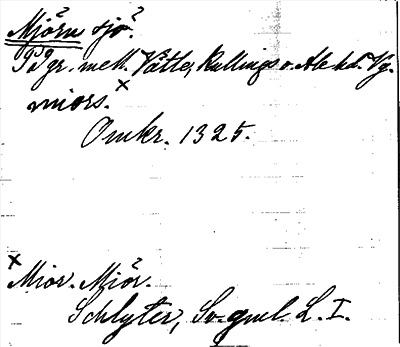 Mjörn sjö.
På gr. mell. Vätle, Kullings o. Ale hd. Vg.
miors. x
Omkr. 1325.
x
Mior. Miör.
Schlyter, Sv. gml. L. I.